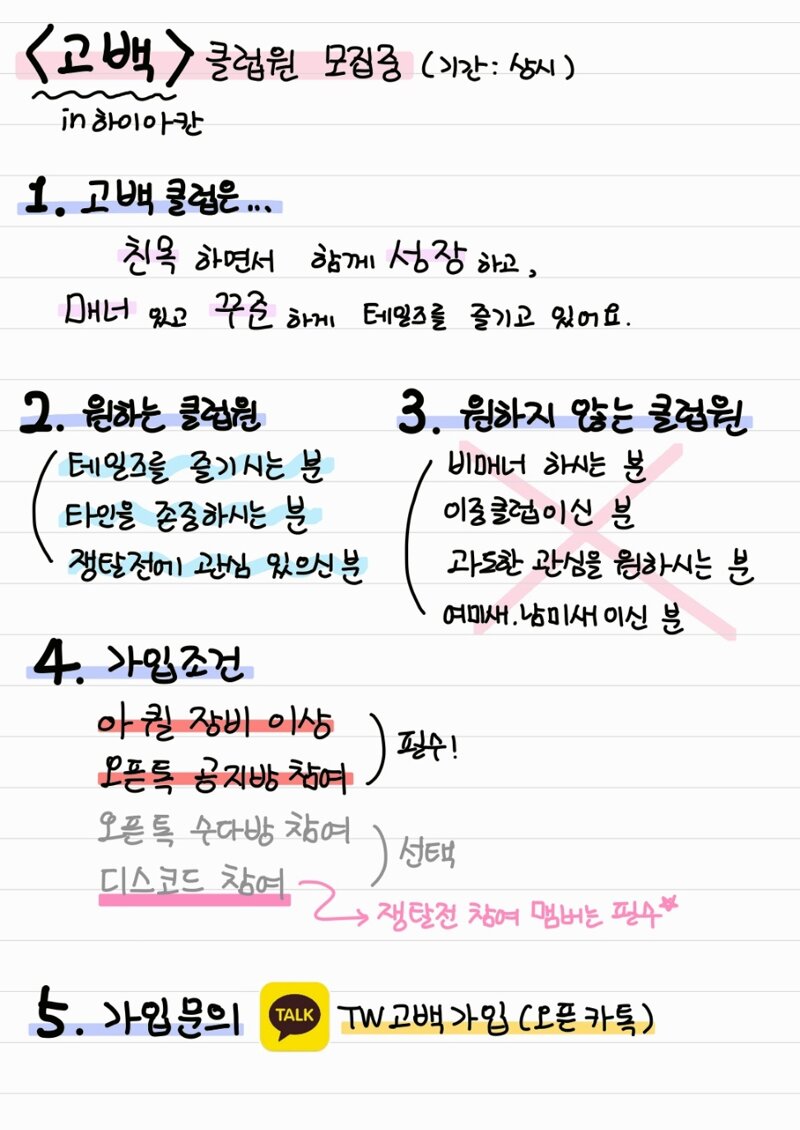 <고백> 클럽원 모집중 (기간: 상시)
in 하이아칸
1. 고백 클럽은...
친목 하면서 함께 성장 하고,
매너 있고 꾸준 하게 테일즈를 즐기고 있어요.
2. 원하는 클럽원
테일즈를 즐기시는 분
타인을 존중하시는 분
쟁탈전에 관심 있으신 분
3. 원하지 않는 클럽원
비매너 하시는 분
이중클럽이신 분
과도한 관심을 원하시는 분
여미새.남미새이신 분
4. 가입조건
아퀼 장비 이상
오픈톡 공지방 참여
필수!
오픈톡 수다방 참여
디스코드 참여
선택
쟁탈전 참여 멤버는 필수
5. 가입문의 TALK TW고백가입(오픈카톡)